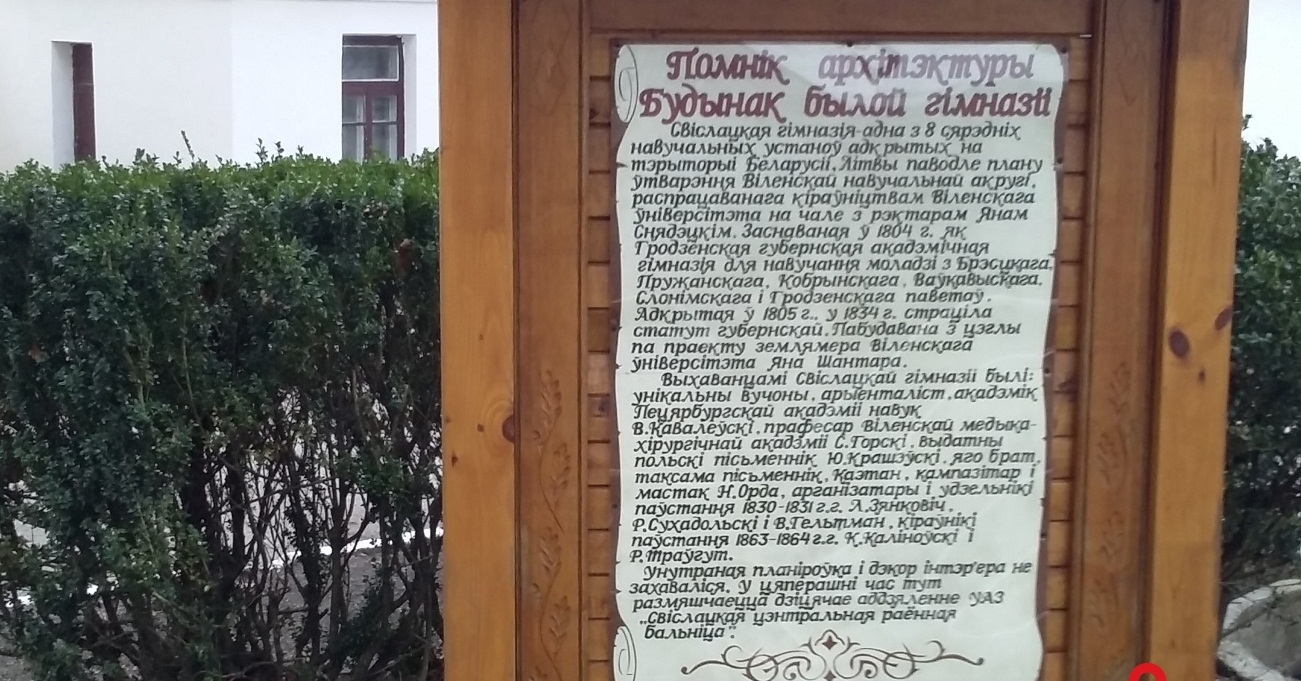 Помнік архітэктуры
Будынак былой гімназіі
Свіслацкая гімназія-адна з 8 сярэдніх
навучальных устаноў адкрытых на
тэрыторыі Беларусіі, Літвы паводле плану
ўтварэння Віленскай навучальнай акругі,
распрацаванага кіраўніцтвам Віленскага
ўніверсітэта на чале з рэктарам Янам
Снядэцкім. Заснаваная ў 1804 г. як
Гродзенская губернская акадэмічная
гімназія для навучання моладзі з Брэсцкага,
Пружанскага, Кобрынскага, Ваўкавыскага,
Слонімскага і Гродзенскага паветаў.
Адкрытая ў 1805 г., у 1834 г. страціла
статут губернскай. Пабудавана з цэглы
па праекту землямера Віленскага
ўніверсітэта Яна Шантара.
Выхаванцамі Свіслацкай гімназіі былі:
унікальны вучоны, арыенталіст, акадэмік
Пецярбургскай акадэміі навук
В.Кавалеўскі, прафесар Віленскай медыка-
хірургічнай акадэміі С.Горскі, выдатны
польскі пісьменнік Ю.Крашэўскі, яго брат,
таксама пісьменнік, Каэтан, кампазітар і
мастак Н.Орда, арганізатары і удзельнікі
паўстання 1830-1831 г.г. Л.Зянковіч,
Р.Сухадольскі і В.Гельтман, кіраўнікі
паўстання 1863-1864 г.г. К.Каліноўскі і
Р.Траўгут.
Унутраная планіроўка і дэкор інтэр'ера не
захаваліся. У цяперашні час тут
размяшчаецца дзіцячае аддзяленне УАЗ
„Свіслацкая цэнтральная раённая
бальніца".